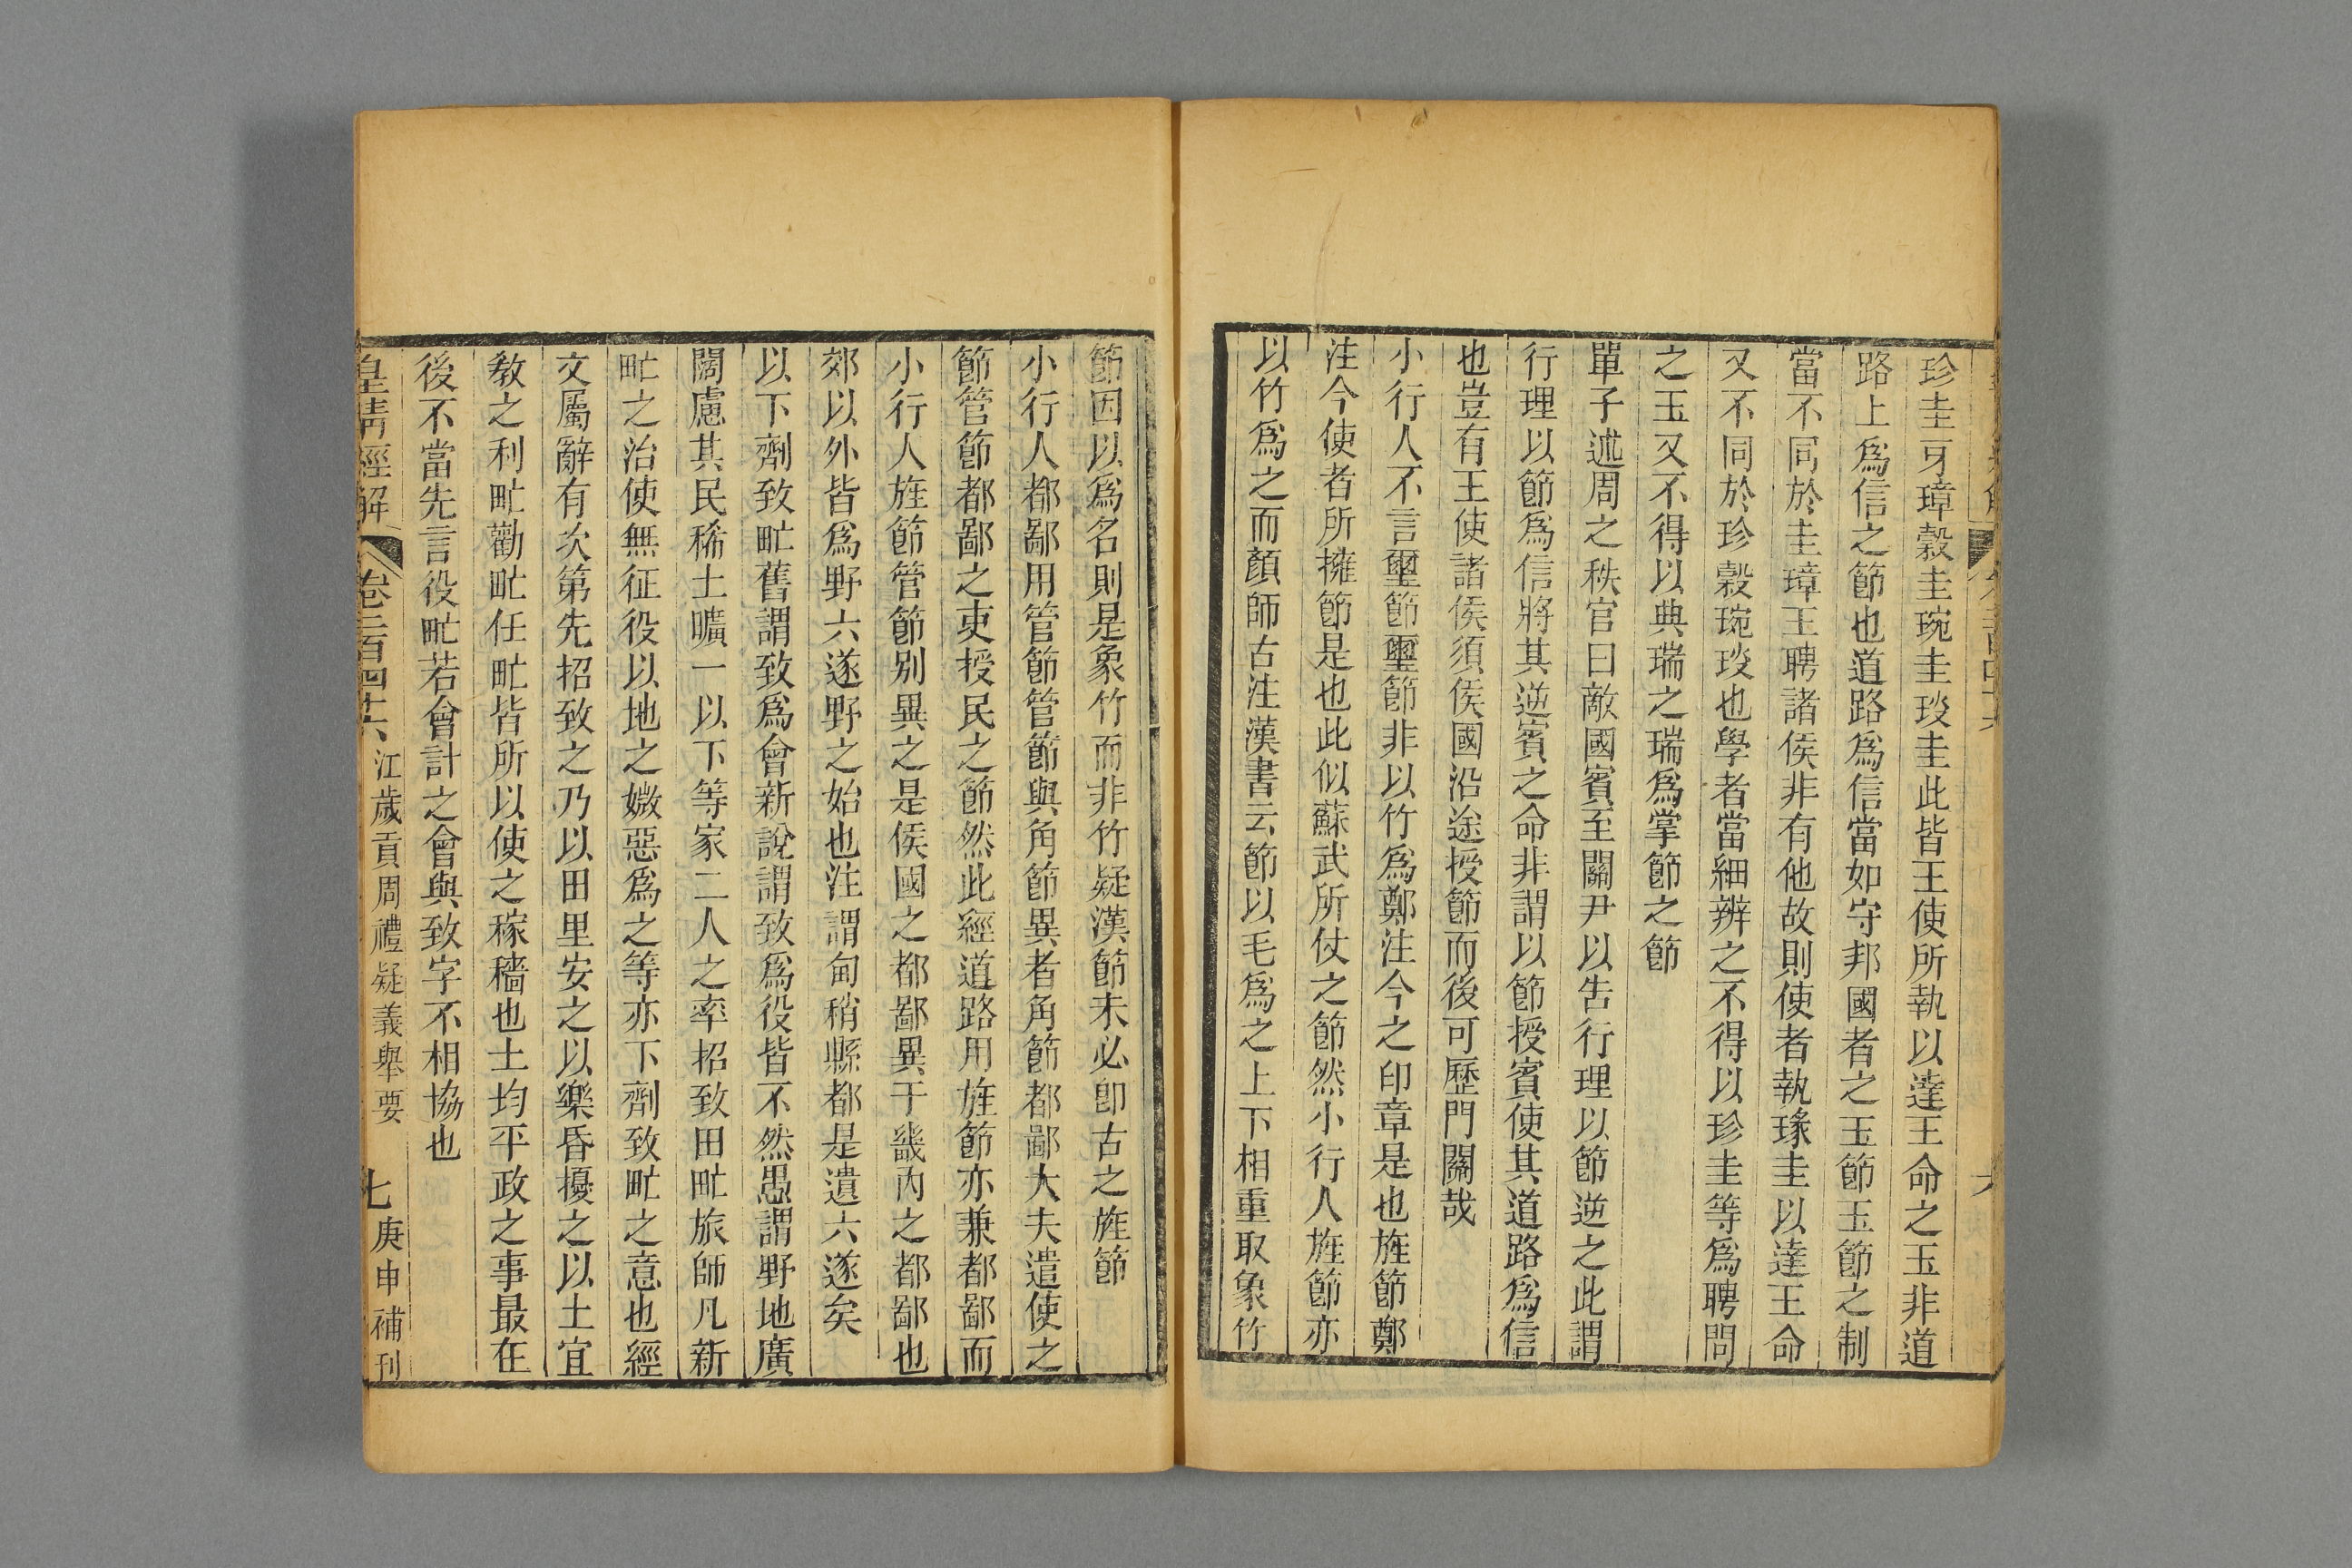 珍圭牙璋穀圭琬圭琰圭此皆王使所執以達王命之玉非道
路上爲信之節也道路爲信當如守邦國者之玉節玉節之制
當不同於圭璋王聘諸侯非有他故則使者執瑑圭以達王命
又不同於珍穀琬琰也學者當細辨之不得以珍圭等爲聘問
之玉又不得以典瑞之瑞爲掌節之節
單子述周之秩官曰敵國賓至關尹以告行理以節逆之此謂
行理以節爲信將其逆賓之命非謂以節授賓使其道路爲信
也豈有王使諸侯須侯國沿途授節而後可歷門關哉
小行人不言璽節璽節非以竹爲鄭注今之印章是也旌節鄭
注今使者所擁節是也此似蘇武所仗之節然小行人旌節亦
以竹爲之而顏師古注漢書云節以毛爲之上下相重取象竹
節因以爲名則是象竹而非竹疑漢節未必卽古之旌節
小行人都鄙用管節管節與角節異者角節都鄙大夫遣使之
節管節都鄙之吏授民之節然此經道路用旌節亦兼都鄙而
小行人旌節管節別異之是侯國之都鄙異于畿內之都鄙也
郊以外皆爲野六遂野之始也注謂甸稍縣都是遺六遂矣
以下劑致甿舊謂致爲會新說謂致爲役皆不然愚謂野地廣
闊慮其民稀土曠一以下等家二人之率招致田甿旅師凡新
甿之治使無征役以地之媺惡爲之等亦下劑致甿之意也經
文屬辭有次第先招致之乃以田里安之以樂昏擾之以土宜
教之利甿勸甿任甿皆所以使之稼穡也土均平政之事最在
後不當先言役甿若會計之會與致字不相協也
皇清經解 卷二百四十六 江歲貢周禮疑義舉要 七 庚申補刊